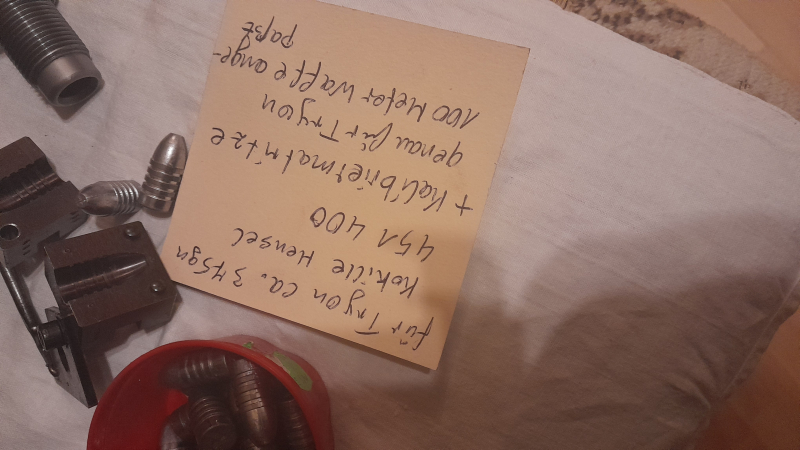 für Tryon ca. 375gn
Kokille Hensel
451 400
+ Kalibriermatritze
genau für Tryon
100 Meter Waffe ange-
paßt